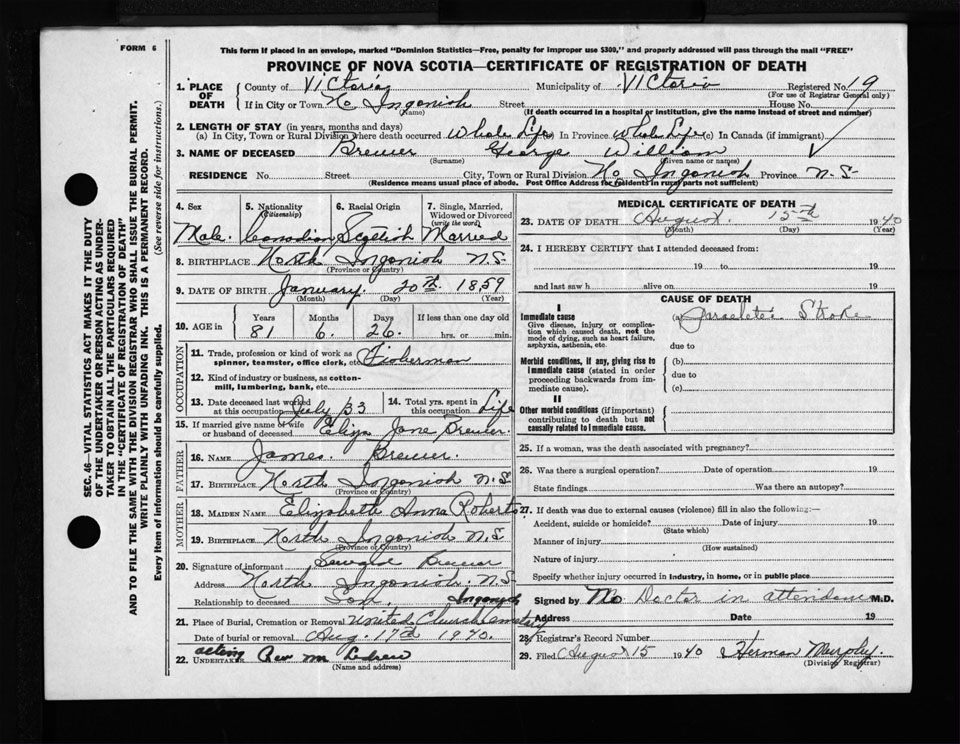 FORM 6
This form if placed in an envelope, marked "Dominion Statistics—Free, penalty for improper use $300," and properly addressed will pass through the mail "FREE"
PROVINCE OF NOVA SCOTIA—CERTIFICATE OF REGISTRATION OF DEATH
1. PLACE OF DEATH { County of Victoria Municipality of Victoria Registered No. 19
(For use of Registrar General only)
If in City or Town No Ingonish Street House No.
(Name) (If death occurred in a hospital or institution, give the name instead of street and number)
2. LENGTH OF STAY (in years, months and days)
(a) In City, Town or Rural Division where death occurred Whole Life (b) In Province Whole Life (c) In Canada (if immigrant)
3. NAME OF DECEASED Brewer George William
(Surname) (Given name or names)
RESIDENCE No. Street City, Town or Rural Division No Ingonish Province N.S.
(Residence means usual place of abode. Post Office Address for residents in rural parts not sufficient)
SEC. 46—VITAL STATISTICS ACT ON MAKES IT THE DUTY
OF THE UNDERTAKER OR PERSON ACTING AS UNDER-
TAKER TO OBTAIN ALL THE PARTICULARS REQUIRED
IN THE "CERTIFICATE OF REGISTRATION OF DEATH"
AND TO FILE THE SAME WITH THE DIVISION REGISTRAR WHO SHALL ISSUE THE BURIAL PERMIT.
WRITE PLAINLY WITH UNFADING INK. THIS IS A PERMANENT RECORD.
Every item of information should be carefully supplied. (See reverse side for instructions.)
4. Sex 5. Nationality (Citizenship) 6. Racial Origin 7. Single, Married, Widowed or Divorced (write the word)
Male. Canadian Scottish Married
8. BIRTHPLACE North Ingonish N.S.
(Province or Country)
9. DATE OF BIRTH January. 20th. 1859
(Month) (Day) (Year)
10. AGE in { Years Months Days If less than one day old
81 6. 26. hrs. or min.
OCCUPATION
11. Trade, profession or kind of work as spinner, teamster, office clerk, etc. Fisherman
12. Kind of industry or business, as cotton-mill, lumbering, bank, etc.
13. Date deceased last worked at this occupation July 33 14. Total yrs. spent in this occupation Life
15. If married give name of wife or husband of deceased Eliza Jane Brewer.
FATHER
16. NAME James. Brewer.
17. BIRTHPLACE North Ingonish N.S
(Province or Country)
MOTHER
18. MAIDEN NAME Elizabeth Anna Roberts
19. BIRTHPLACE North Ingonish N.S
(Province or Country)
20. Signature of informant Brewer
Address North Ingonish. N.S
Relationship to deceased Son. Ingonish
21. Place of Burial, Cremation or Removal United Church Cemetary
Date of burial or removal Aug. 17th 1940.
22. UNDERTAKER acting Rev M
(Name and address)
MEDICAL CERTIFICATE OF DEATH
23. DATE OF DEATH August. 15th 1940
(Month) (Day) (Year)
24. I HEREBY CERTIFY that I attended deceased from:
19 to 19
and last saw h alive on 19
CAUSE OF DEATH
I
Immediate cause (a) Stroke
Give disease, injury or complication which caused death, not the mode of dying, such as heart failure, asphyxia, asthenia, etc.
due to
Morbid conditions, if any, giving rise to immediate cause (stated in order proceeding backwards from immediate cause).
(b)
due to
(c)
II
Other morbid conditions (if important) contributing to death but not causally related to immediate cause.
25. If a woman, was the death associated with pregnancy?
26. Was there a surgical operation? Date of operation 19
State findings Was there an autopsy?
27. If death was due to external causes (violence) fill in also the following:—
Accident, suicide or homicide? Date of injury 19
(State which)
Manner of injury
(How sustained)
Nature of injury
Specify whether injury occurred in industry, in home, or in public place
Signed by No Doctor in attendence M.D.
Address Date 19
28. Registrar's Record Number
29. Filed August 15 1940 Herman Murphy
(Division Registrar)